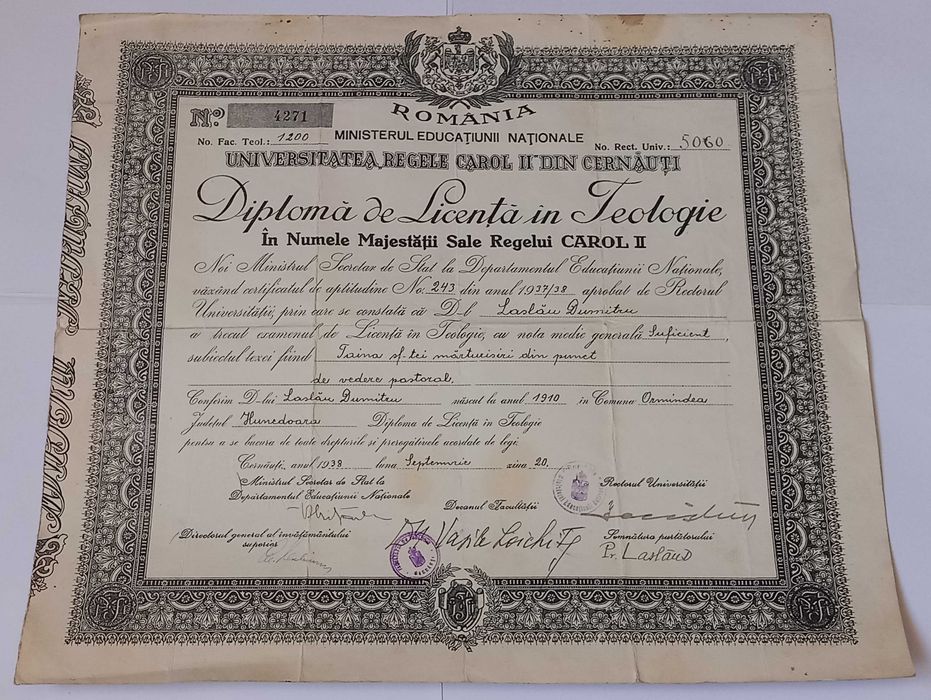 ROMÂNIA
Nº 4271
MINISTERUL EDUCAȚIUNII NAȚIONALE
No. Fac. Teol.: 1200
No. Rect. Univ.: 5060
UNIVERSITATEA „REGELE CAROL II” DIN CERNĂUȚI
Diplomă de Licență în Teologie
În Numele Majestății Sale Regelui CAROL II
Noi Ministrul Secretar de Stat la Departamentul Educațiunii Naționale,
văzând certificatul de aptitudine No. 243 din anul 1937/38 aprobat de Rectorul
Universității, prin care se constată că D-l Laslău Dumitru
a trecut examenul de Licență în Teologie, cu nota medie generală Suficient,
subiectul tezei fiind Taina sf-tei mărturisiri din punct
de vedere pastoral.
Conferim D-lui Laslău Dumitru născut la anul 1910 în Comuna Ormindea
Județul Hunedoara Diploma de Licență în Teologie
pentru a se bucura de toate drepturile și prerogativele acordate de legi.
Cernăuți, anul 1938 luna Septemvrie ziua 20.
Ministrul Secretar de Stat la
Departamentul Educațiunii Naționale
Decanul Facultății
Rectorul Universității
Directorul general al învățământului
superior
Vasile Loichiță
Semnătura purtătorului
Pr. Laslău D